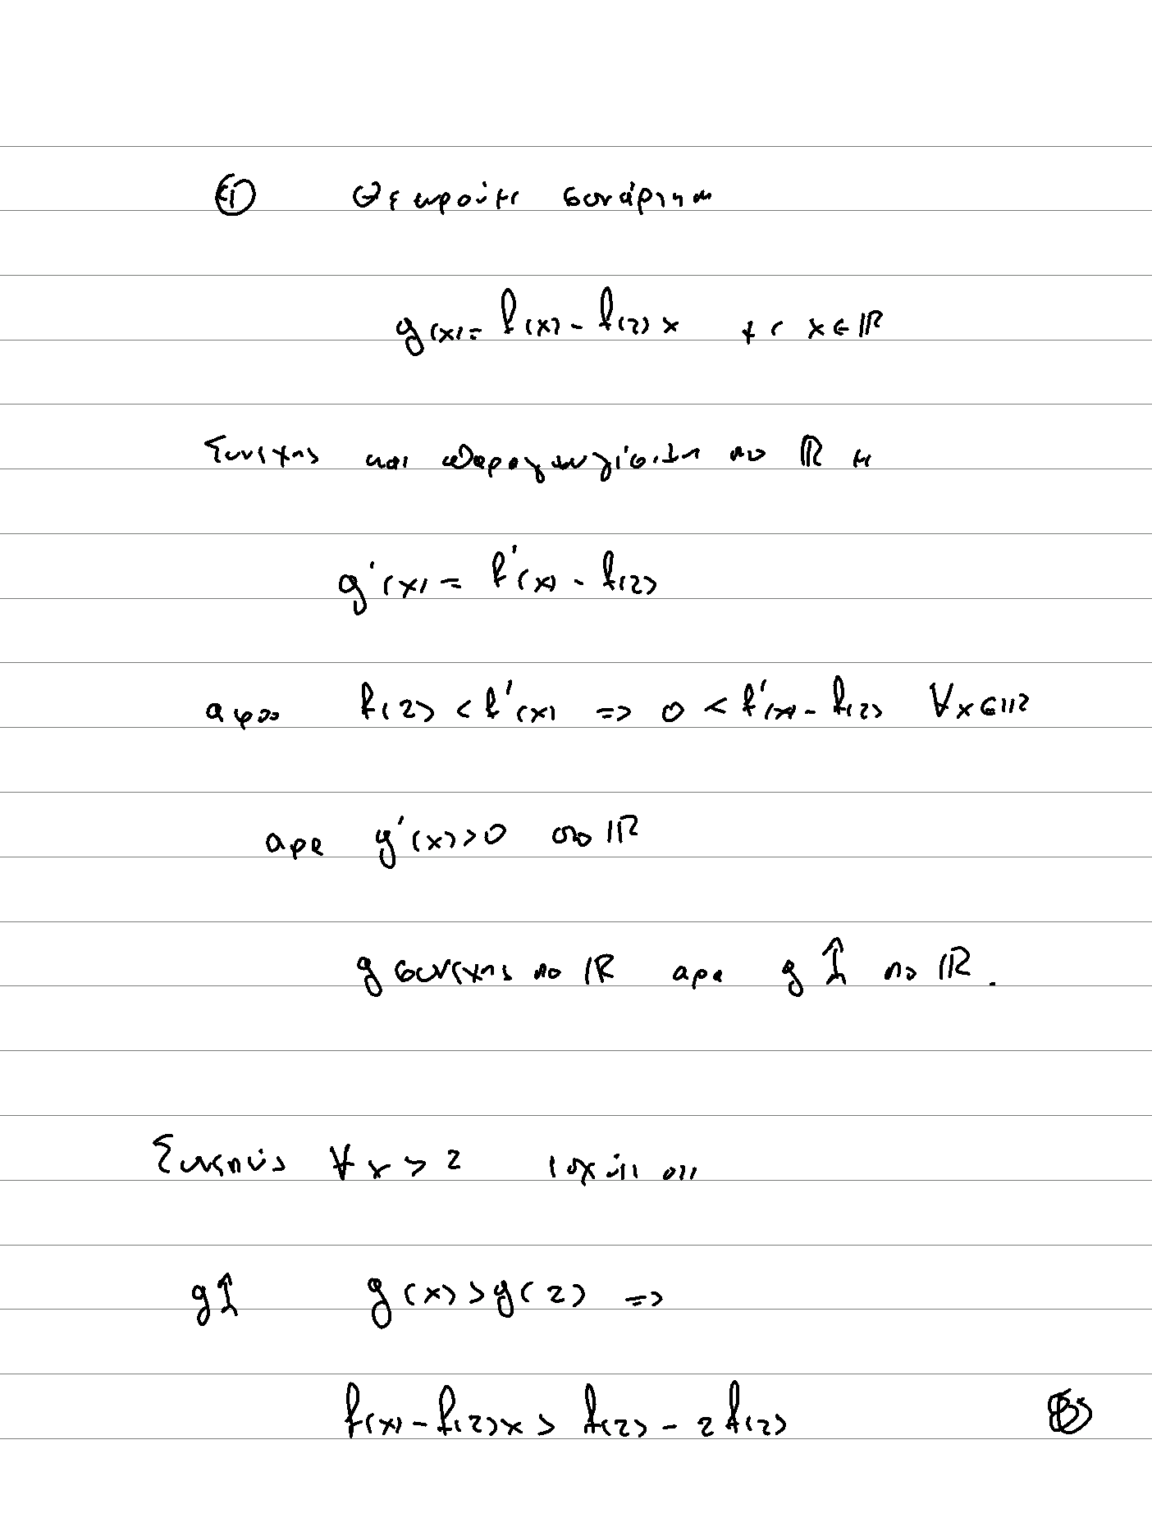 Θεωρούμε συνάρτηση
g(x) = f(x) - f(2)x με x ∈ ℝ
Συνεχης και παραγωγίσιμη στο ℝ με
g'(x) = f'(x) - f(2)
αφου f(2) < f'(x) => 0 < f'(x) - f(2) ∀x∈ℝ
αρα g'(x) > 0 στο ℝ
g συνεχης στο ℝ αρα g ↑ στο ℝ.
Συνεπώς ∀x > 2 ισχύει οτι
g↑ g(x) > g(2) =>
f(x) - f(2)x > f(2) - 2f(2)